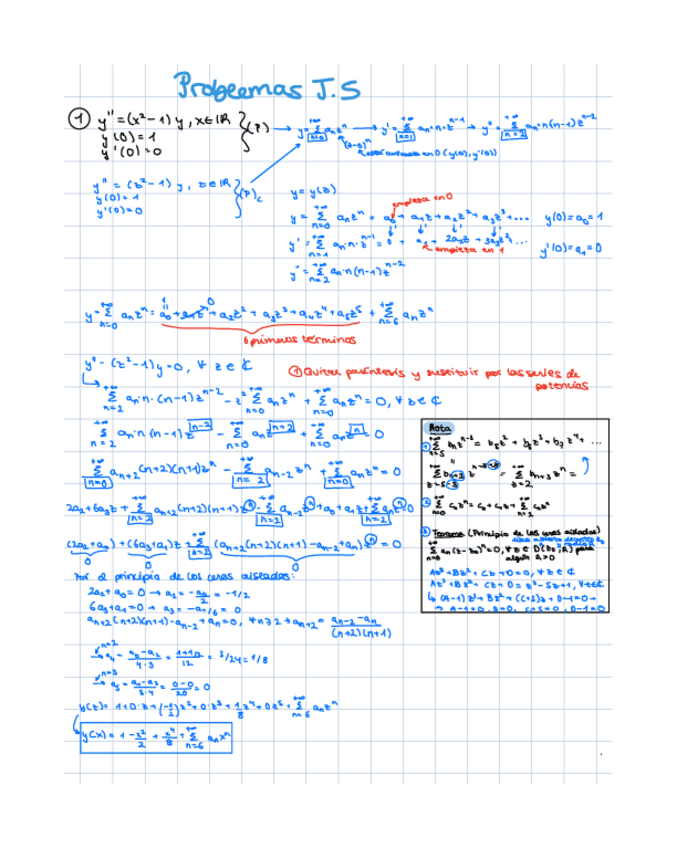 Problemas T.S
① y'' = (x²-1) y , x∈ℝ } (P) → y = Σ_{n=0}^{+∞} aₙzⁿ → y' = Σ_{n=1}^{+∞} aₙ·n·z^{n-1} → y'' = Σ_{n=2}^{+∞} aₙ·n(n-1)z^{n-2}
y(0) = 1
y'(0) = 0
(z-0)ⁿ
en 0 (y(0), y'(0))
y'' = (z²-1) y , z∈ℝ } (P)_c
y(0) = 1
y'(0) = 0
y = y(z)
empieza en 0
y = Σ_{n=0}^{+∞} aₙzⁿ = a₀ + a₁z + a₂z² + a₃z³ + ... y(0) = a₀ = 1
y' = Σ_{n=1}^{+∞} aₙ·n·z^{n-1} = 0 + a₁ + 2a₂z + 3a₃z² ... y'(0) = a₁ = 0
empieza en 1
y'' = Σ_{n=2}^{+∞} aₙ·n(n-1)z^{n-2}
y = Σ_{n=0}^{+∞} aₙzⁿ = a₀ + a₁z + a₂z² + a₃z³ + a₄z⁴ + a₅z⁵ + Σ_{n=6}^{+∞} aₙzⁿ
1 0
6 primeros términos
y'' - (z²-1)y = 0, ∀ z ∈ ℂ
① Quitar paréntesis y sustituir por las series de potencias
Σ_{n=2}^{+∞} aₙ·n·(n-1)z^{n-2} - z² Σ_{n=0}^{+∞} aₙzⁿ + Σ_{n=0}^{+∞} aₙzⁿ = 0, ∀ z ∈ ℂ
Σ_{n=2}^{+∞} aₙ·n(n-1)z^{n-2} - Σ_{n=0}^{+∞} aₙz^{n+2} + Σ_{n=0}^{+∞} aₙzⁿ = 0
Σ_{n=0}^{+∞} aₙ₊₂(n+2)(n+1)zⁿ - Σ_{n=2}^{+∞} aₙ₋₂zⁿ + Σ_{n=0}^{+∞} aₙzⁿ = 0
2a₂ + 6a₃z + Σ_{n=2}^{+∞} aₙ₊₂(n+2)(n+1)zⁿ - Σ_{n=2}^{+∞} aₙ₋₂zⁿ + a₀ + a₁z + Σ_{n=2}^{+∞} aₙzⁿ = 0
(2a₂+a₀) + (6a₃+a₁)z + Σ_{n=2}^{+∞} (aₙ₊₂(n+2)(n+1) - aₙ₋₂ + aₙ)zⁿ = 0
0 0 0
Por el principio de los ceros aislados:
2a₂ + a₀ = 0 → a₂ = -a₀/2 = -1/2
6a₃ + a₁ = 0 → a₃ = -a₁/6 = 0
aₙ₊₂(n+2)(n+1) - aₙ₋₂ + aₙ = 0, ∀n≥2 → aₙ₊₂ = (aₙ₋₂ - aₙ)/((n+2)(n+1))
n=2 → a₄ = (a₀-a₂)/(4·3) = (1+1/2)/12 = 3/24 = 1/8
n=3 → a₅ = (a₁-a₃)/(5·4) = (0-0)/20 = 0
y(z) = 1 + 0·z + (-1/2)z² + 0·z³ + 1/8 z⁴ + 0z⁵ + Σ_{n=6}^{+∞} aₙzⁿ
y(x) = 1 - x²/2 + x⁴/8 + Σ_{n=6}^{+∞} aₙxⁿ
Nota
① Σ_{n=5}^{+∞} bₙz^{n-3} = b₅z² + b₆z³ + b₇z⁴ + ...
② Σ_{n=0}^{+∞} cₙzⁿ = c₀ + c₁z + Σ_{n=2}^{+∞} cₙzⁿ
③ Teorema (Principio de los ceros aislados)
Σ_{n=0}^{+∞} aₙ(z-z₀)ⁿ = 0, ∀ z ∈ D(z₀,R) para
algún R>0
Az³ + Bz² + Cz + D = 0, ∀ z ∈ ℂ
Az³ + Bz² + Cz + D = z³ - 5z + 1, ∀z∈ℂ
↳ (A-1)z³ + Bz² + (C+5)z + D-1 = 0 →
→ A-1=0, B=0, C+5=0, D-1=0